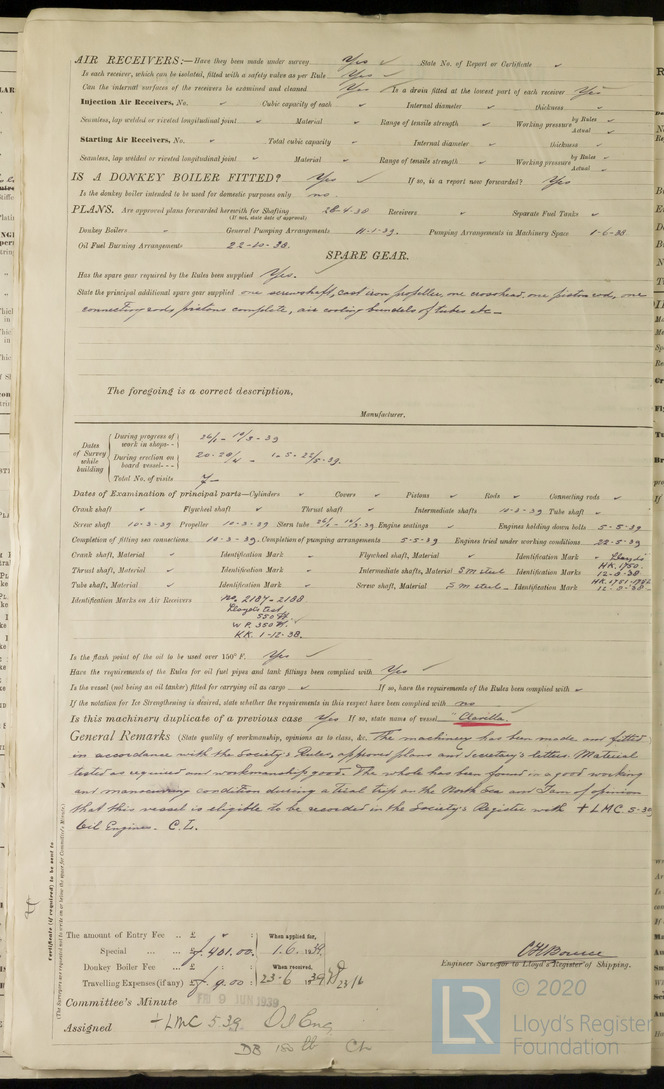 AIR RECEIVERS:—Have they been made under survey Yes ✓ State No. of Report or Certificate ✓
Is each receiver, which can be isolated, fitted with a safety valve as per Rule Yes ✓
Can the internal surfaces of the receivers be examined and cleaned Yes ✓ Is a drain fitted at the lowest part of each receiver Yes
Injection Air Receivers, No. ✓ Cubic capacity of each ✓ Internal diameter ✓ thickness ✓
Seamless, lap welded or riveted longitudinal joint ✓ Material ✓ Range of tensile strength ✓ Working pressure by Rules ✓ Actual ✓
Starting Air Receivers, No. ✓ Total cubic capacity ✓ Internal diameter ✓ thickness ✓
Seamless, lap welded or riveted longitudinal joint ✓ Material ✓ Range of tensile strength ✓ Working pressure by Rules ✓ Actual ✓
IS A DONKEY BOILER FITTED? Yes ✓ If so, is a report now forwarded? Yes
Is the donkey boiler intended to be used for domestic purposes only no.
PLANS. Are approved plans forwarded herewith for Shafting 28-4-38 Receivers ✓ Separate Fuel Tanks ✓
(If not, state date of approval)
Donkey Boilers " General Pumping Arrangements 11-1-39. Pumping Arrangements in Machinery Space 1-6-38
Oil Fuel Burning Arrangements 22-10-38.
SPARE GEAR.
Has the spare gear required by the Rules been supplied Yes.
State the principal additional spare gear supplied one screwshaft, cast iron propeller, one crosshead, one piston rod, one
connecting rod, pistons complete, air cooling bundels of tubes etc—
The foregoing is a correct description,
Manufacturer.
Dates of Survey while building
During progress of work in shops-- 26/1 - 10/3-39
During erection on board vessel--- 20-28/4 - 1-5-22/5-39.
Total No. of visits 7—
Dates of Examination of principal parts—Cylinders ✓ Covers ✓ Pistons ✓ Rods ✓ Connecting rods ✓
Crank shaft ✓ Flywheel shaft ✓ Thrust shaft ✓ Intermediate shafts 10-3-39 Tube shaft ✓
Screw shaft 10-3-39 Propeller 10-3-39 Stern tube 26/1-10/3-39 Engine seatings ✓ Engines holding down bolts 5-5-39
Completion of fitting sea connections 10-3-39. Completion of pumping arrangements 5-5-39 Engines tried under working conditions 22-5-39
Crank shaft, Material ✓ Identification Mark ✓ Flywheel shaft, Material ✓ Identification Mark ✓
Thrust shaft, Material ✓ Identification Mark ✓ Intermediate shafts, Material S.M steel Identification Marks Lloyds HK.1750. 12-8-38
Tube shaft, Material ✓ Identification Mark ✓ Screw shaft, Material S.M steel Identification Mark
Identification Marks on Air Receivers No. 2187-2188
Lloyds test
550 lb.
W.P. 350 lb.
H.K. 1-12-38.
Is the flash point of the oil to be used over 150° F. Yes ✓
Have the requirements of the Rules for oil fuel pipes and tank fittings been complied with Yes ✓
Is the vessel (not being an oil tanker) fitted for carrying oil as cargo ✓ If so, have the requirements of the Rules been complied with ✓
If the notation for Ice Strengthening is desired, state whether the requirements in this respect have been complied with no
Is this machinery duplicate of a previous case Yes If so, state name of vessel "Clavella."
General Remarks (State quality of workmanship, opinions as to class, &c. The machinery has been made and fitted
in accordance with the Society's Rules, approved plans and Secretary's letters. Material
tested as required and workmanship good. The whole has been found in a good working
and manoeuvring condition during a trial trip on the North Sea and I am of opinion
that this vessel is eligible to be recorded in the Society's Register with +LMC 5-39
Oil Engines. C.L.
Certificate (if required) to be sent to
(The Surveyors are requested not to write on or below the space for Committee's Minute.)
The amount of Entry Fee .. £ : When applied for,
Special ... ... £ 401.00. 1.6.1939.
Donkey Boiler Fee ... £ : When received,
Travelling Expenses (if any) £ 9.00 : 23-6 1939
Engineer Surveyor to Lloyd's Register of Shipping.
Committee's Minute FRI 9 JUN 1939
Assigned +LMC 5.39. Oil Eng
DB 180 lb CL
LR © 2020
Lloyd's Register
Foundation